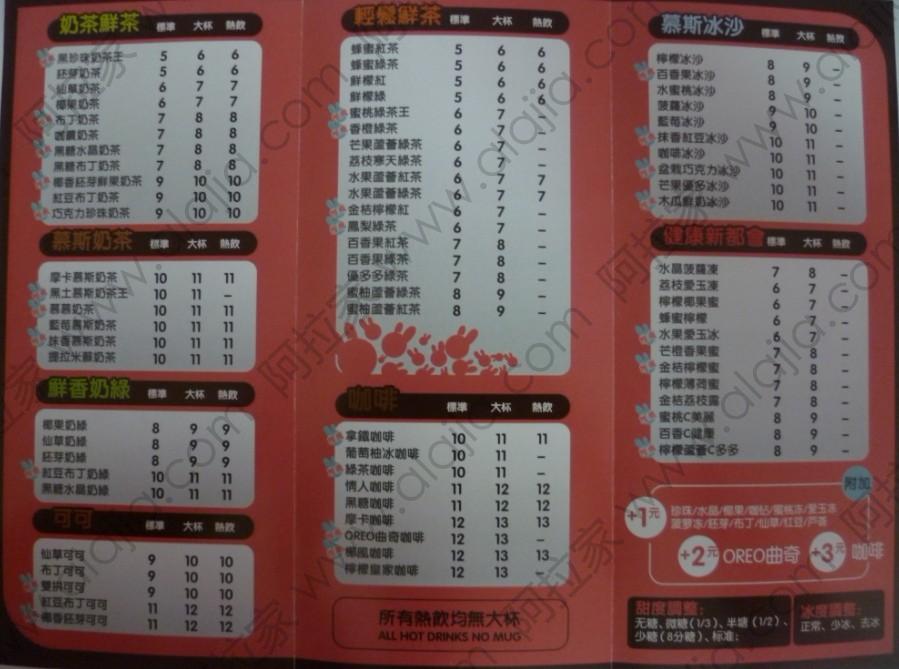 奶茶鮮茶 標準 大杯 熱飲
黑珍珠奶茶王 5 6 6
胚芽奶茶 5 6 6
仙草奶茶 6 7 7
椰果奶茶 6 7 7
布丁奶茶 7 8 8
咖啡奶茶 7 8 8
黑糖水晶奶茶 7 8 8
黑糖布丁奶茶 7 8 8
椰香胚芽鮮果奶茶 9 10 10
紅豆布丁奶茶 9 10 10
巧克力珍珠奶茶 9 10 10
慕斯奶茶 標準 大杯 熱飲
摩卡慕斯奶茶 10 11 11
黑土慕斯奶茶王 10 11 –
慕慕奶茶 10 11 11
藍莓慕斯奶茶 10 11 11
抹香慕斯奶茶 10 11 11
提拉米蘇奶茶 10 11 11
鮮香奶綠 標準 大杯 熱飲
椰果奶綠 8 9 9
仙草奶綠 8 9 9
胚芽奶綠 8 9 9
紅豆布丁奶綠 10 11 11
黑糖水晶奶綠 10 11 11
可可 標準 大杯 熱飲
仙草可可 9 10 10
布丁可可 9 10 10
雙拱可可 9 10 10
紅豆布丁可可 11 12 12
椰香胚芽可可 11 12 12
輕鬆鮮茶 標準 大杯 熱飲
蜂蜜紅茶 5 6 6
蜂蜜綠茶 5 6 6
鮮檬紅 5 6 6
鮮檬綠 5 6 6
蜜桃綠茶王 6 7 –
香橙綠茶 6 7 –
芒果蘆薈綠茶 6 7 –
荔枝寒天綠茶 6 7 –
水果蘆薈紅茶 6 7 7
水果蘆薈綠茶 6 7 7
金桔檸檬紅 6 7 –
鳳梨綠茶 6 7 –
百香果紅茶 7 8 –
百香果綠茶 7 8 –
優多多綠茶 7 8 –
蜜柚蘆薈綠茶 8 9 –
蜜柚蘆薈紅茶 8 9 –
咖啡 標準 大杯 熱飲
拿鐵咖啡 10 11 11
葡萄柚冰咖啡 10 11 –
綠茶咖啡 10 11 –
情人咖啡 11 12 12
黑糖咖啡 11 12 12
摩卡咖啡 12 13 13
OREO曲奇咖啡 12 13 –
椰風咖啡 12 13 13
檸檬皇家咖啡 12 13 –
所有熱飲均無大杯
ALL HOT DRINKS NO MUG
慕斯冰沙 標準 大杯 熱飲
檸檬冰沙 8 9 –
百香果冰沙 8 9 –
水蜜桃冰沙 8 9 –
菠蘿冰沙 9 10 –
藍莓冰沙 9 10 –
抹香紅豆冰沙 10 11 –
咖啡冰沙 10 11 –
盆栽巧克力冰沙 10 11 –
芒果優多冰沙 10 11 –
木瓜鮮奶冰沙 10 11 –
健康新都會 標準 大杯 熱飲
水晶菠蘿凍 7 8 –
荔枝愛玉凍 6 7 –
檸檬椰果蜜 6 7 –
蜂蜜檸檬 6 7 –
水果愛玉冰 6 7 –
芒橙香果蜜 7 8 –
金桔檸檬蜜 7 8 –
檸檬薄荷蜜 7 8 –
金桔荔枝露 7 8 –
蜜桃C美麗 8 9 –
百香C健康 8 9 –
檸檬蘆薈C多多 8 9 –
附加
+1元 珍珠/水晶/椰果/咖钻/蜜桃冻/爱玉冻
菠萝冻/胚芽/布丁/仙草/红豆/芦荟
+2元 OREO曲奇 +3元 咖啡
甜度調整:
无糖、微糖(1/3)、半糖(1/2)、
少糖(8分糖)、标准;
冰度調整:
正常、少冰、去冰
阿拉家 www.alajia.com